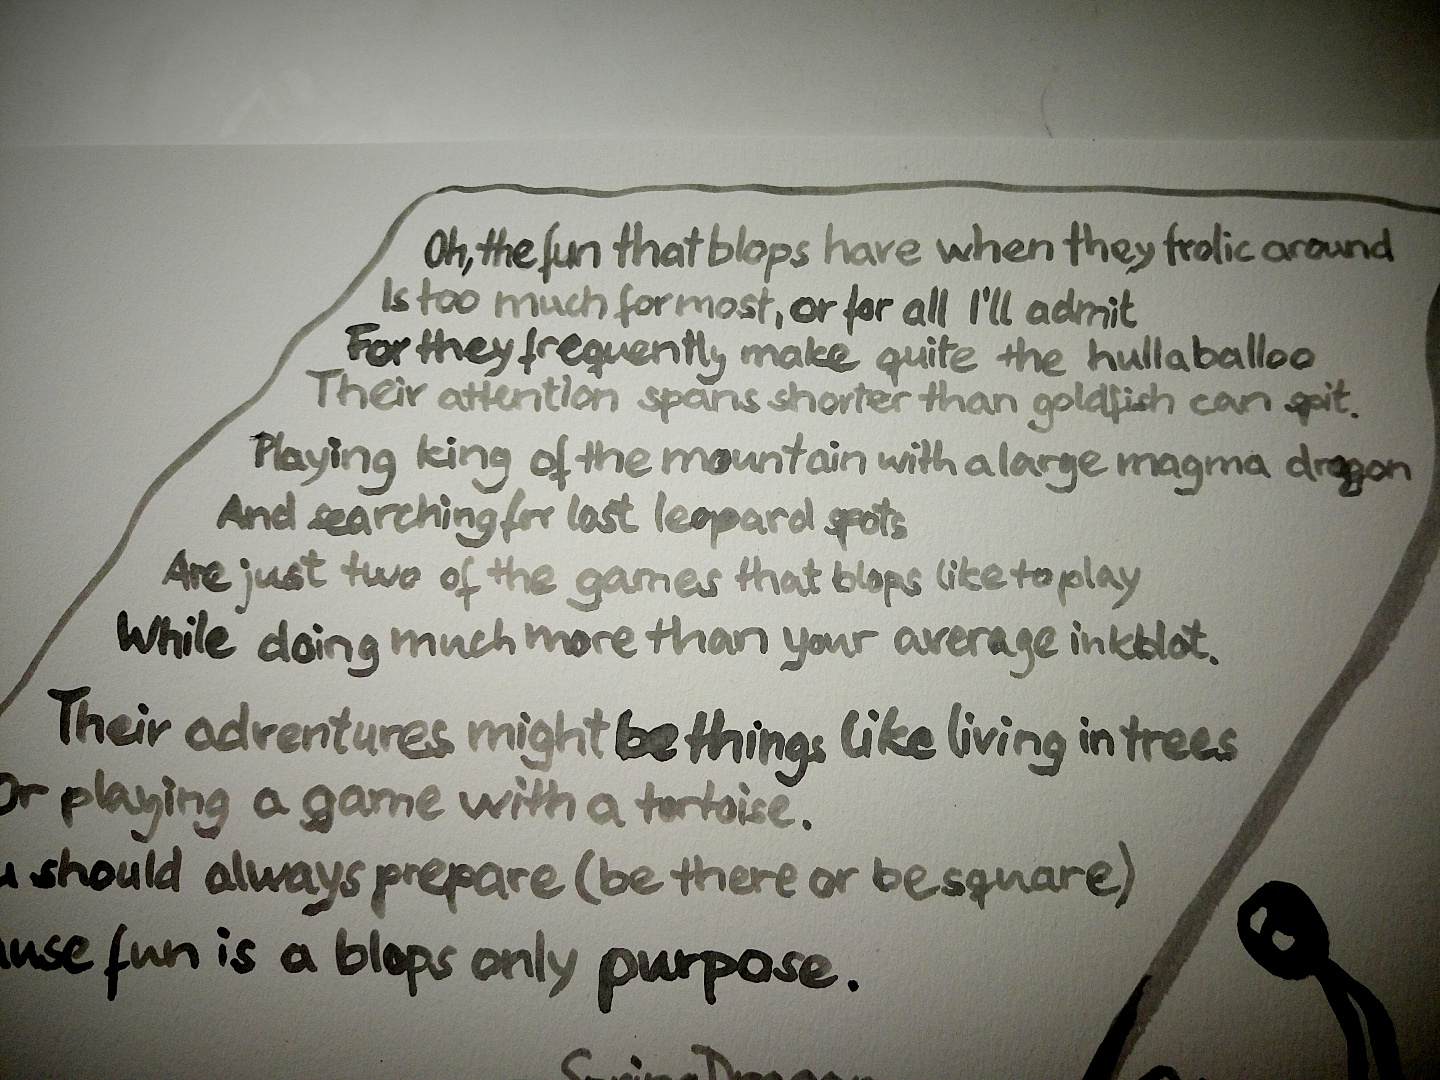 Oh, the fun that blops have when they frolic around
Is too much for most, or for all I'll admit
For they frequently make quite the hullaballoo
Their attention spans shorter than goldfish can spit.
Playing king of the mountain with a large magma dragon
And searching for lost leopard spots
Are just two of the games that blops like to play
While doing much more than your average inkblot.
Their adventures might be things like living in trees
Or playing a game with a tortoise.
should always prepare (be there or be square)
fun is a blops only purpose.